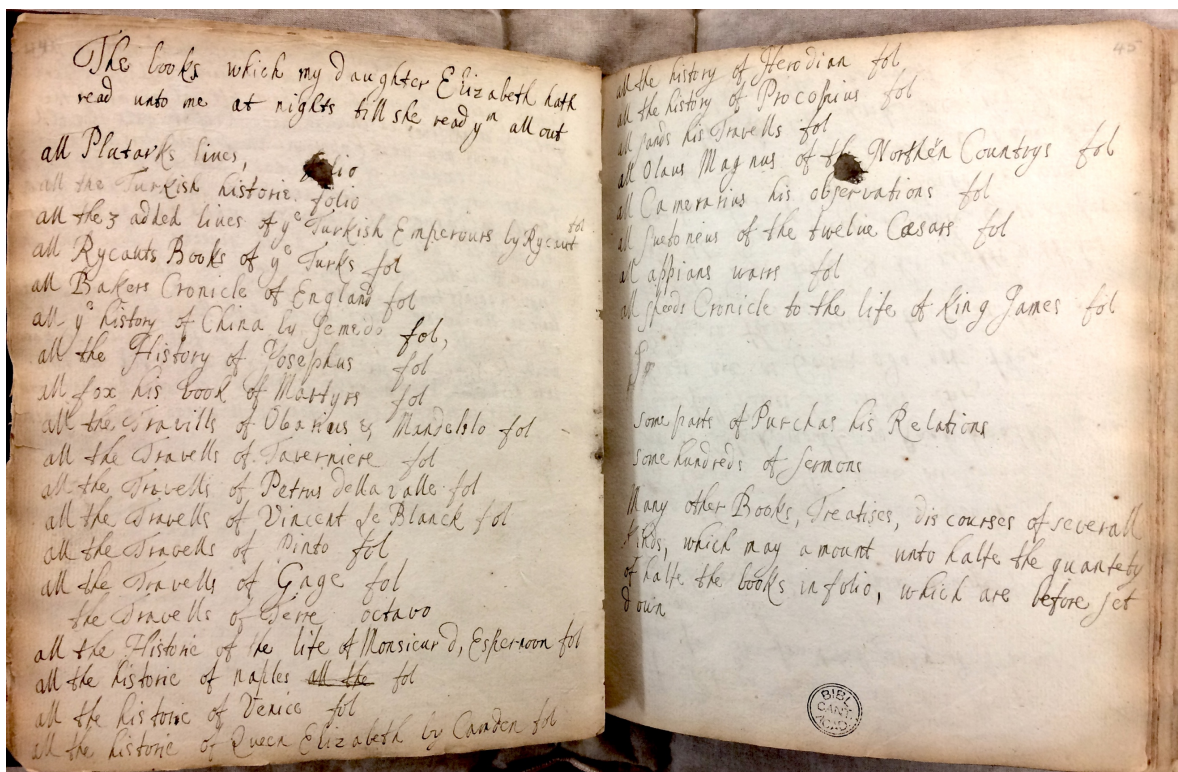 The books which my daughter Elizabeth hath
read unto me at nights till she read yᵐ all out
all Plutarks lives,
all the Turkish historie folio
all the 3 added lives of yᵉ Turkish Emperours by Rycaut fol
all Rycauts Books of yᵉ Turks fol
all Bakers Cronicle of England fol
all yᵉ history of China by Semedo fol,
all the History of Josephus fol
all fox his book of Martyrs fol
all the Travills of Olearius & Mandelslo fol
all the Travells of Taverniere fol
all the Travells of Petrus della valle fol
all the Travells of Vincent Le Blanck fol
all the Travells of Pinto fol
all the Travells of Gage fol
the Travells of Terre octavo
all the Historie of the life of Monsieur d, Espernoon fol
all the historie of naples all the fol
all the historie of Venice fol
all the historie of Queen Elizabeth by Camden fol
45
all the history of Herodian fol
all the history of Procopius fol
all sands his Travells fol
all Olaus Magnus of the Northěn Countrys fol
all Camerarius his observations fol
all Suetoneus of the twelve Cæsars fol
all appians warrs fol
all speeds Cronicle to the life of King James fol
some parts of Purchas his Relations
some hundreds of sermons
Many other Books, Treatises, discourses of severall
kinds, which may amount unto halfe the quantety
of halfe the books in folio, which are before set
down
BIBL
CANT
ACAD